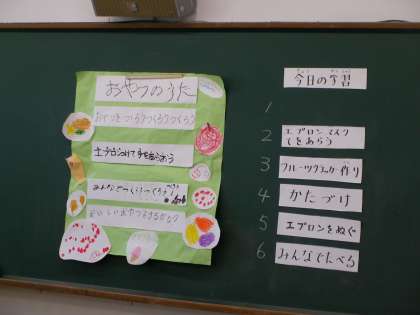 おやつのうた
おやつをつくろうつくろうつくろう
エプロンつけて手をあらおう
みんなで
おいしいおやつ
今日の学習
1
2 エプロン マスク
てをあらう
3 フルーツヨーグルト作り
4 かたづけ
5 エプロンをぬぐ
6 みんなでたべる